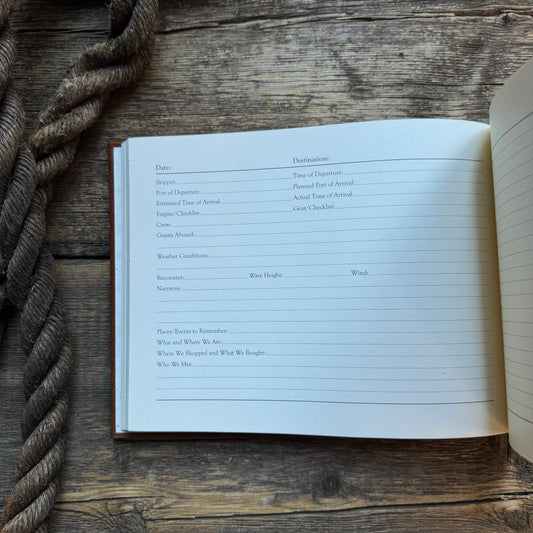 Dates Destinations
Skipper: Time of Departure:
Port of Departure: Planned Port of Arrival:
Estimated Time of Arrival: Actual Time of Arrival:
Engine/Checklist: Gear/Checklist:
Crew:
Guests Aboard:
Weather Conditions:
Barometer: Wave Height: Wind:
Narrative:
Places/Events to Remember:
What and Where We Ate:
Where We Shopped and What We Bought:
Who We Met: